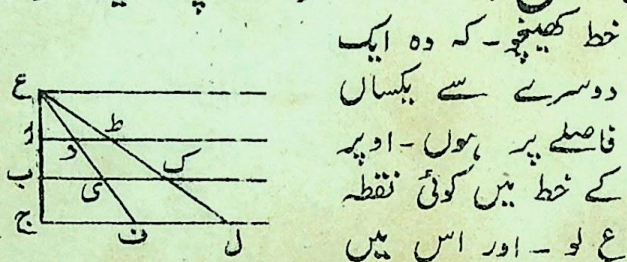 خط کھینچو - کہ وہ ایک
دوسرے سے یکساں
فاصلے پر ہوں - اوپر
کے خط میں کوئی نقطہ
ع لو - اور اس میں
ع
ا د ط
ب ی ک
ج ف ل